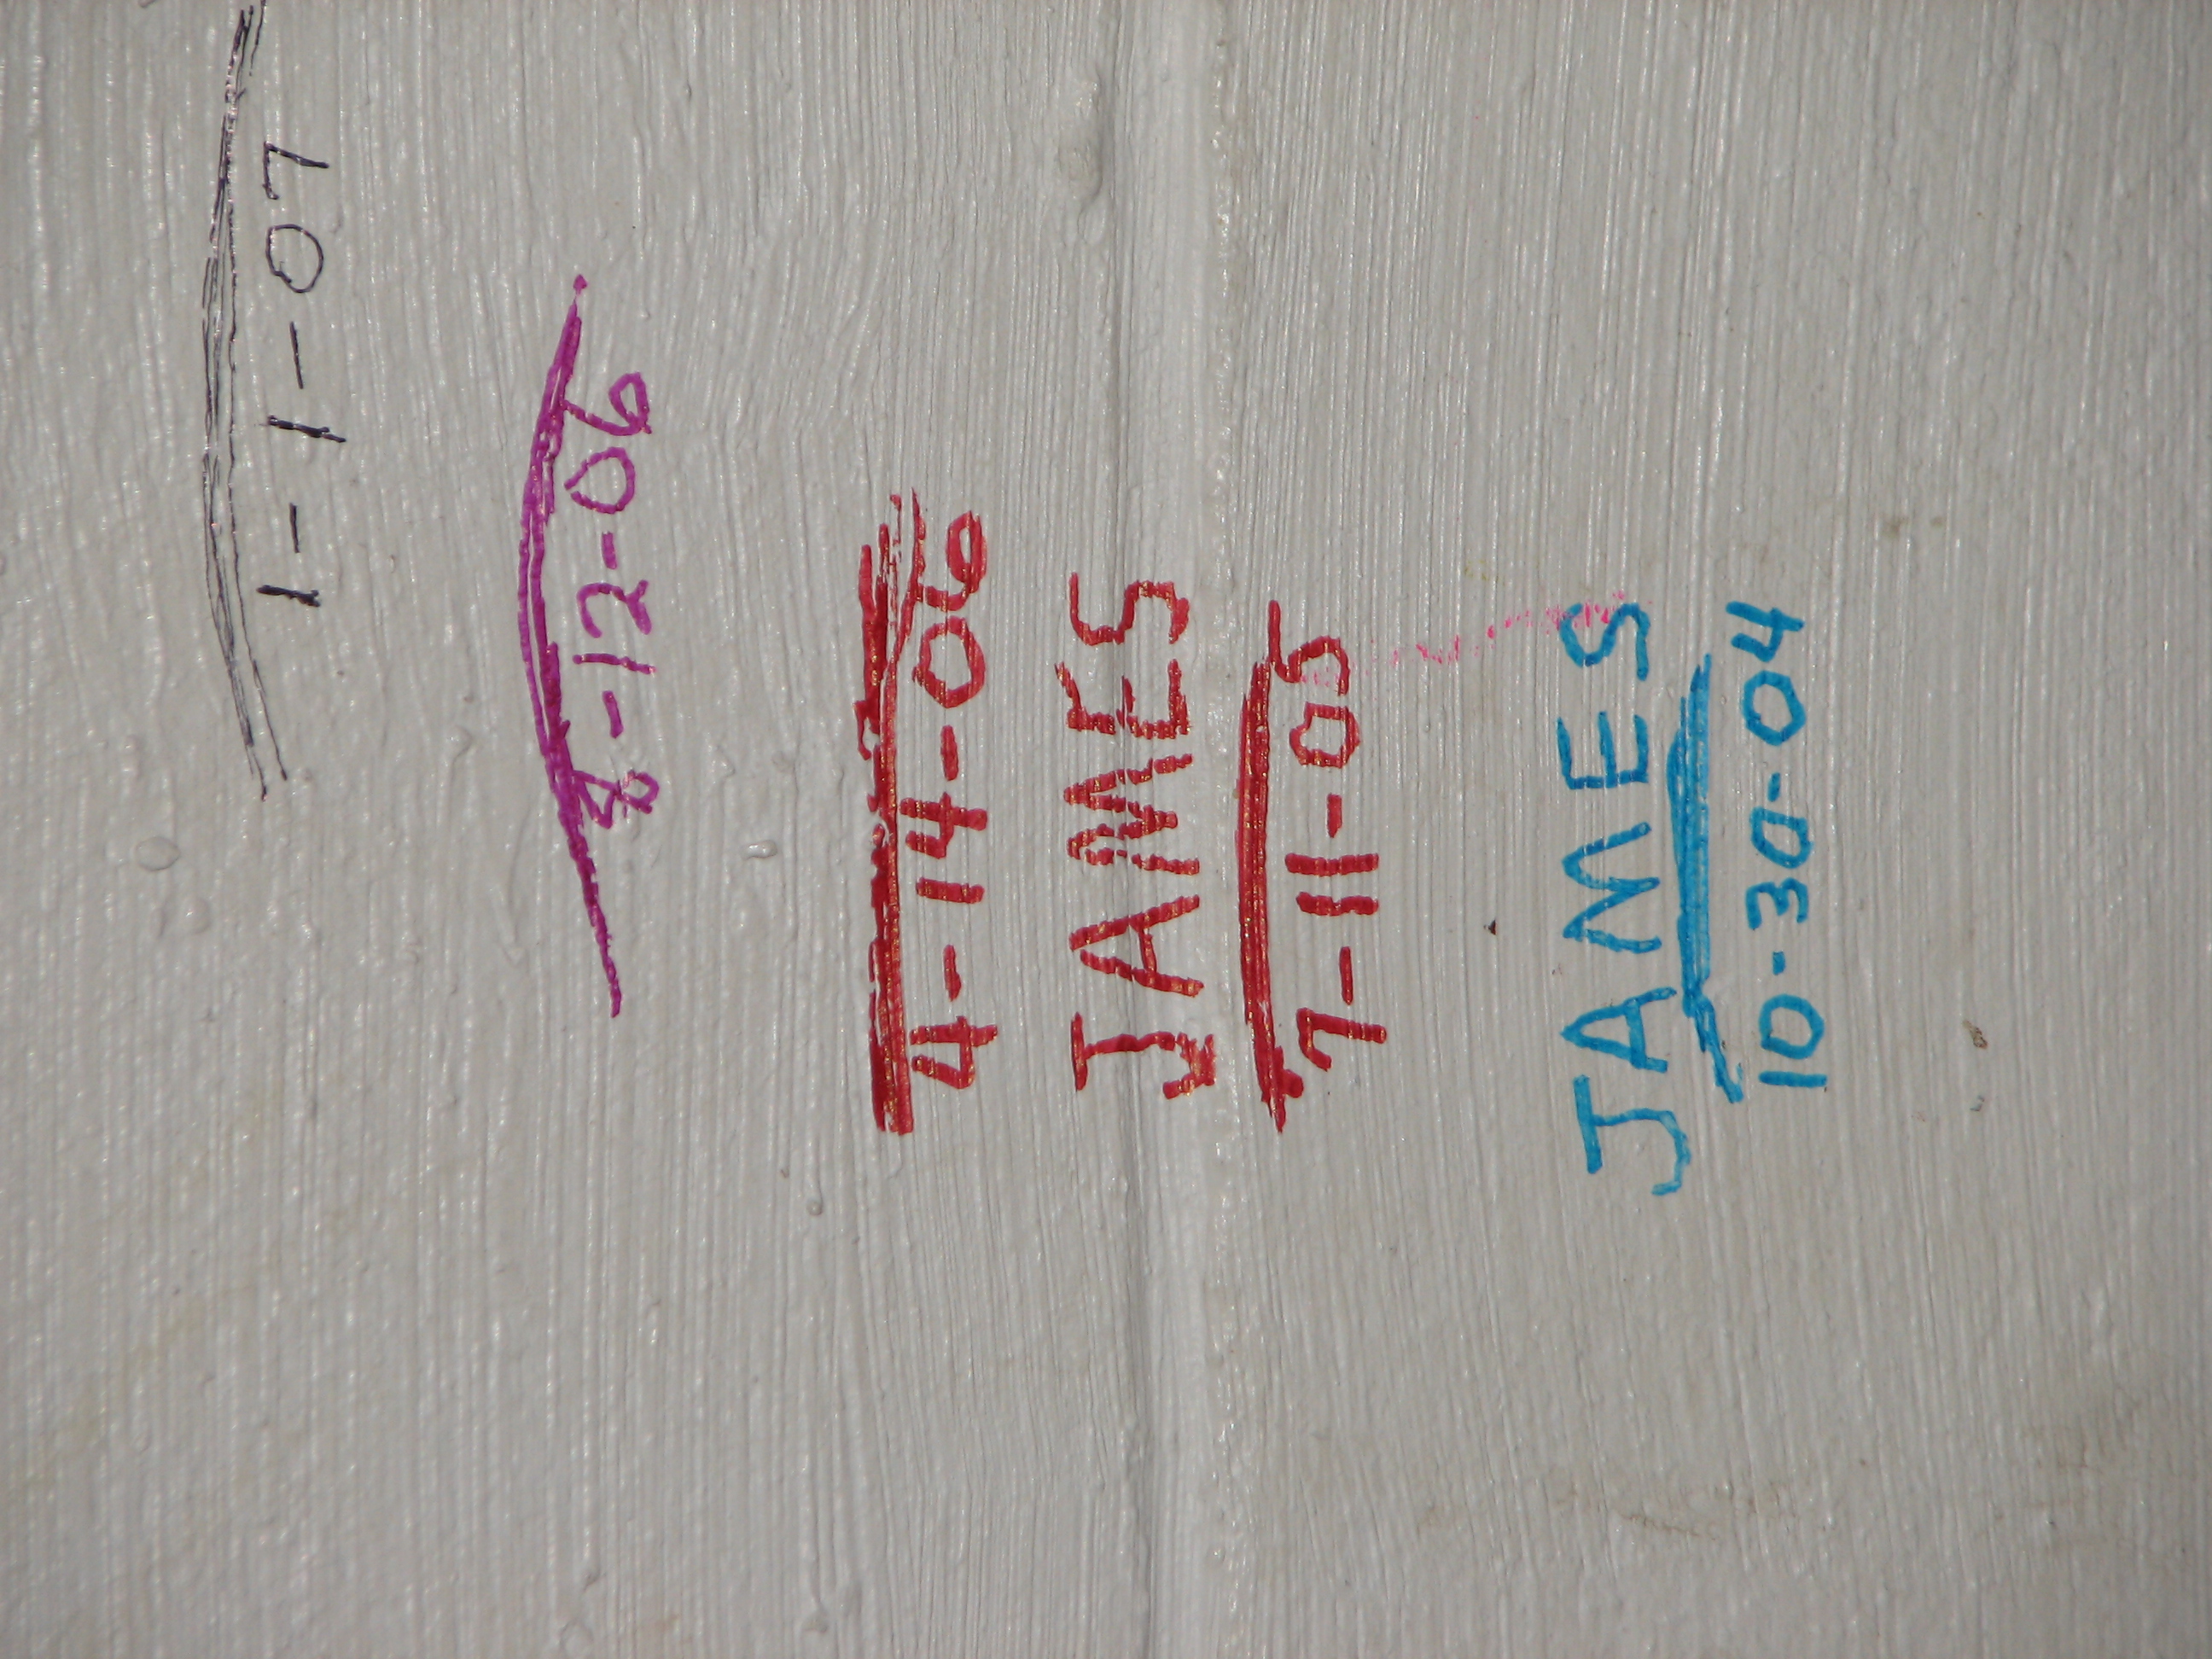 1-1-07
8-12-06
4-14-06
JAMES
7-11-05
JAMES
10-30-04